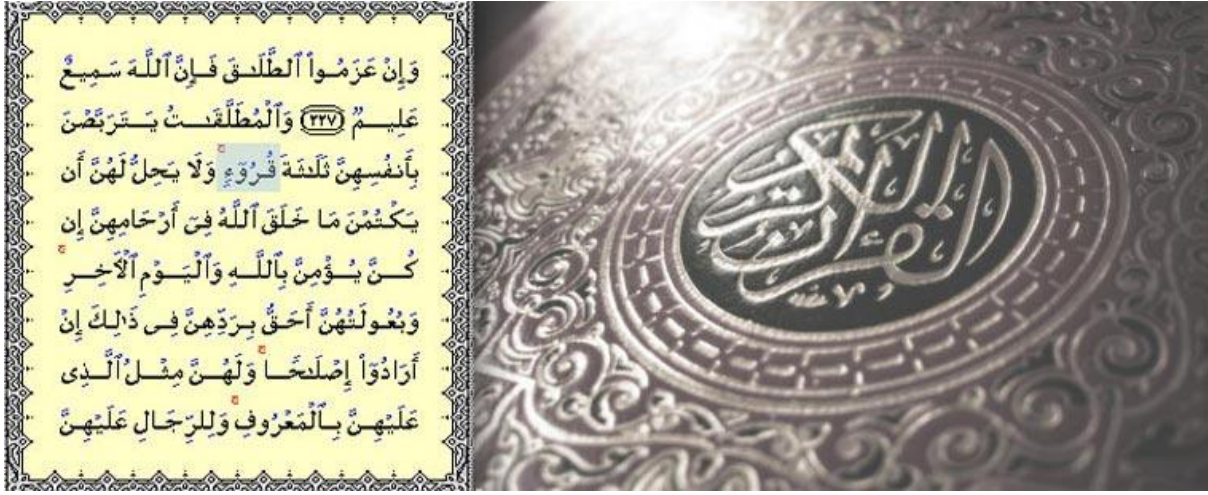 وَإِنْ عَزَمُوا۟ ٱلطَّلَـٰقَ فَإِنَّ ٱللَّهَ سَمِيعٌ
عَلِيمٌ ﴿٢٢٧﴾ وَٱلْمُطَلَّقَـٰتُ يَتَرَبَّصْنَ
بِأَنفُسِهِنَّ ثَلَـٰثَةَ قُرُوٓءٍ ۚ وَلَا يَحِلُّ لَهُنَّ أَن
يَكْتُمْنَ مَا خَلَقَ ٱللَّهُ فِىٓ أَرْحَامِهِنَّ إِن
كُنَّ يُؤْمِنَّ بِٱللَّهِ وَٱلْيَوْمِ ٱلْـَٔاخِرِ ۚ
وَبُعُولَتُهُنَّ أَحَقُّ بِرَدِّهِنَّ فِى ذَٰلِكَ إِنْ
أَرَادُوٓا۟ إِصْلَـٰحًا ۚ وَلَهُنَّ مِثْلُ ٱلَّذِى
عَلَيْهِنَّ بِٱلْمَعْرُوفِ ۚ وَلِلرِّجَالِ عَلَيْهِنَّ
القرآن الكريم